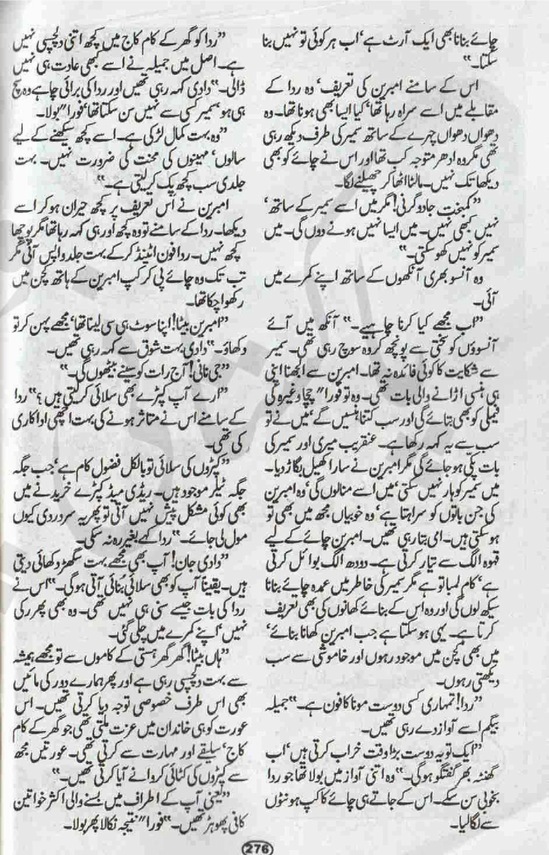 چائے بنانا بھی ایک آرٹ ہے، اب ہر کوئی تو نہیں بنا
سکتا۔"
اس کے سامنے امبرین کی تعریف، وہ ردا کے
مقابلے میں اسے سراہ رہا تھا، کیا ایسا بھی ہونا تھا۔ وہ
دھواں دھواں چہرے کے ساتھ سمیر کی طرف دیکھ رہی
تھی مگر وہ ادھر متوجہ کب تھا اور اس نے چائے کو بھی
دیکھا تک نہیں۔ مالٹا اٹھا کر چھیلنے لگا۔
"کمبخت جادو گرنی! مگر میں اسے سمیر کے ساتھ،
نہیں کبھی نہیں۔ میں ایسا نہیں ہونے دوں گی۔ میں
سمیر کو نہیں کھو سکتی۔"
وہ آنسو بھری آنکھوں کے ساتھ اپنے کمرے میں
آئی۔
"اب مجھے کیا کرنا چاہیے۔" آنکھ میں آئے
آنسوؤں کو سختی سے پونچھ کر وہ سوچ رہی تھی۔ سمیر
سے شکایت کا کوئی فائدہ نہ تھا۔ امبرین سے الجھنا اپنی
ہی ہنسی اڑانے والی بات تھی۔ وہ تو فوراً" چچا وغیرہ کی
فیملی کو بھی بتائے گی اور سب کتنا ہنسیں گے، میں نے تو
سب سے یہ کہہ رکھا ہے۔ عنقریب میری اور سمیر کی
بات پکی ہو جائے گی مگر امبرین نے سارا کھیل بگاڑ دیا۔
میں سمیر کو ہار نہیں سکتی، میں اسے منالوں گی، وہ امبرین
کی جن باتوں کو سراہتا ہے، وہ خوبیاں مجھ میں بھی تو
ہو سکتی ہیں۔ امی بتا رہی تھیں۔ امبرین چائے کے لیے
قہوہ الگ سے تیار کرتی ہے۔ دودھ الگ بوائل کرتی
ہے، کام لمبا تو ہے مگر سمیر کی خاطر میں عمدہ چائے بنانا
سیکھ لوں گی اور وہ اس کے بنائے کھانوں کی بھی تعریف
کرتا ہے۔ یہی ہو سکتا ہے جب امبرین کھانا بنائے،
میں بھی کچن میں موجود رہوں اور خاموشی سے سب
دیکھتی رہوں۔
"ردا! تمہاری کسی دوست مونا کا فون ہے۔" جمیلہ
بیگم اسے آواز دے رہی تھیں۔
"ایک تو یہ دوست بڑا وقت خراب کرتی ہیں، اب
گھنٹہ بھر گفتگو ہو گی۔" وہ اتنی آواز میں بولا تھا جو ردا
بخوبی سن سکے۔ اس کے جاتے ہی چائے کا کپ ہونٹوں
سے لگا لیا۔
"ردا کو گھر کے کام کاج میں کچھ اتنی دلچسپی نہیں
ہے۔ اصل میں جمیلہ نے اسے بھی عادت ہی نہیں
ڈالی۔" دادی کہہ رہی تھیں اور ردا کی برائی چاہے وہ سچ
ہی ہو سمیر کسی سے نہیں سن سکتا تھا، فوراً" بولا۔
"وہ بہت کمال لڑکی ہے۔ اسے کچھ سیکھنے کے لیے
سالوں، مہینوں کی محنت کی ضرورت نہیں۔ بہت
جلدی سب کچھ پک کر لیتی ہے۔"
امبرین نے اس تعریف پر کچھ حیران ہو کر اسے
دیکھا۔ ردا کے سامنے تو وہ کچھ اور ہی کہہ رہا تھا مگر پوچھا
کچھ نہیں۔ ردا فون اٹینڈ کر کے بہت جلد واپس آئی مگر
تب تک وہ چائے پی کر کپ امبرین کے ہاتھ کچن میں
رکھوا چکا تھا۔
"امبرین بیٹا! اپنا سوٹ ہی سی لینا تھا، مجھے پہن کر تو
دکھاؤ۔" دادی بہت شوق سے کہہ رہی تھیں۔
"جی نانی! آج رات کو سینے بیٹھوں گی۔"
"ارے آپ کپڑے بھی سلائی کرتی ہیں؟" ردا
کے سامنے اس نے متاثر ہونے کی بہت اچھی اداکاری
کی تھی۔
"کپڑوں کی سلائی تو بالکل فضول کام ہے، جب جگہ
جگہ ٹیلر موجود ہیں۔ ریڈی میڈ کپڑے خریدنے میں
بھی کوئی مشکل پیش نہیں آتی تو پھر یہ سردردی کیوں
مول لی جائے۔" ردا کہے بغیر رہ نہ سکی۔
"دادی جان! آپ بھی مجھے بہت گھڑ دکھائی دیتی
ہیں۔ یقیناً آپ کو بھی سلائی بنائی آتی ہو گی۔" اس نے
ردا کی بات جیسے سنی ہی نہیں تھی۔ وہ بھی پھر رکی
نہیں، اپنے کمرے میں چلی گئی۔
"ہاں بیٹا! گھر گھر ہستی کے کاموں سے تو مجھے ہمیشہ
سے بہت دلچسپی رہی ہے اور پھر ہمارے دور کی مائیں
بھی اس طرف خصوصی توجہ دیا کرتی تھیں۔ اس
عورت کو ہی خاندان میں عزت ملتی تھی جو گھر کے کام
کاج، سلیقے اور مہارت سے کرتی تھی۔ عورتیں مجھ
سے کپڑوں کی کٹائی کروانے آیا کرتی تھیں۔"
"یعنی آپ کے اطراف میں بسنے والی اکثر خواتین
کافی پھوہڑ تھیں۔" فوراً" نتیجہ نکالا پھر بولا۔
276